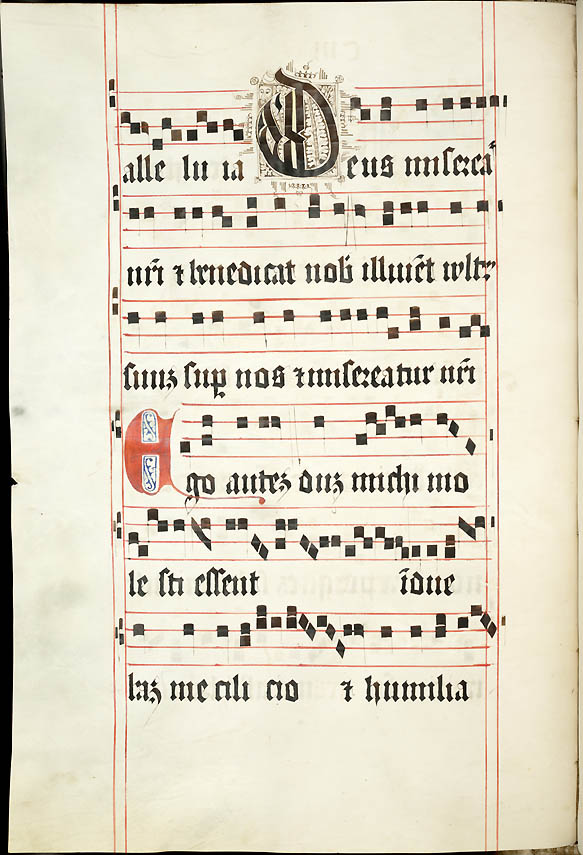 alle lu ia Deus miserea
nr̄i ⁊ benedicat nob̄ illuiēt vultū
suuʒ sup̱ nos ⁊ misereatur nr̄i
Ego auteʒ duʒ michi mo
le sti essent īdue
baʒ me cili cio ⁊ humilia